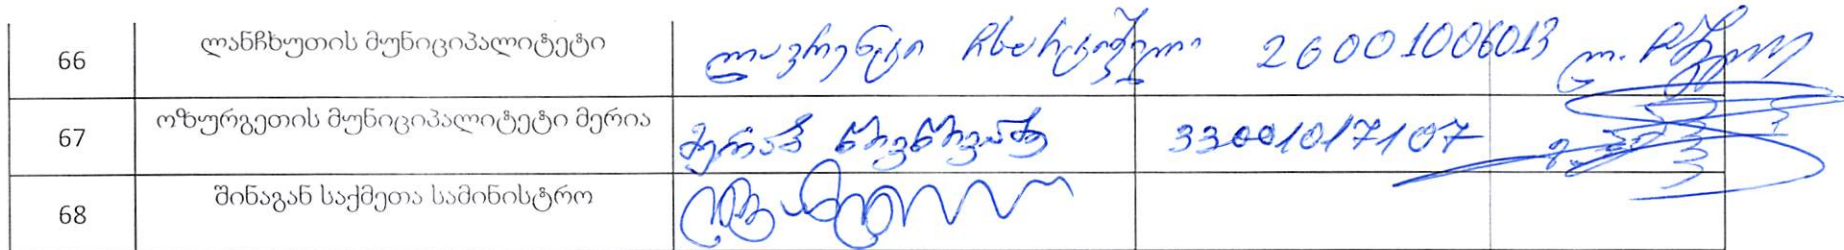 66 ლანჩხუთის მუნიციპალიტეტი ლავრენტი 26001006013
67 ოზურგეთის მუნიციპალიტეტი მერია მერაბ 33001017107
68 შინაგან საქმეთა სამინისტრო